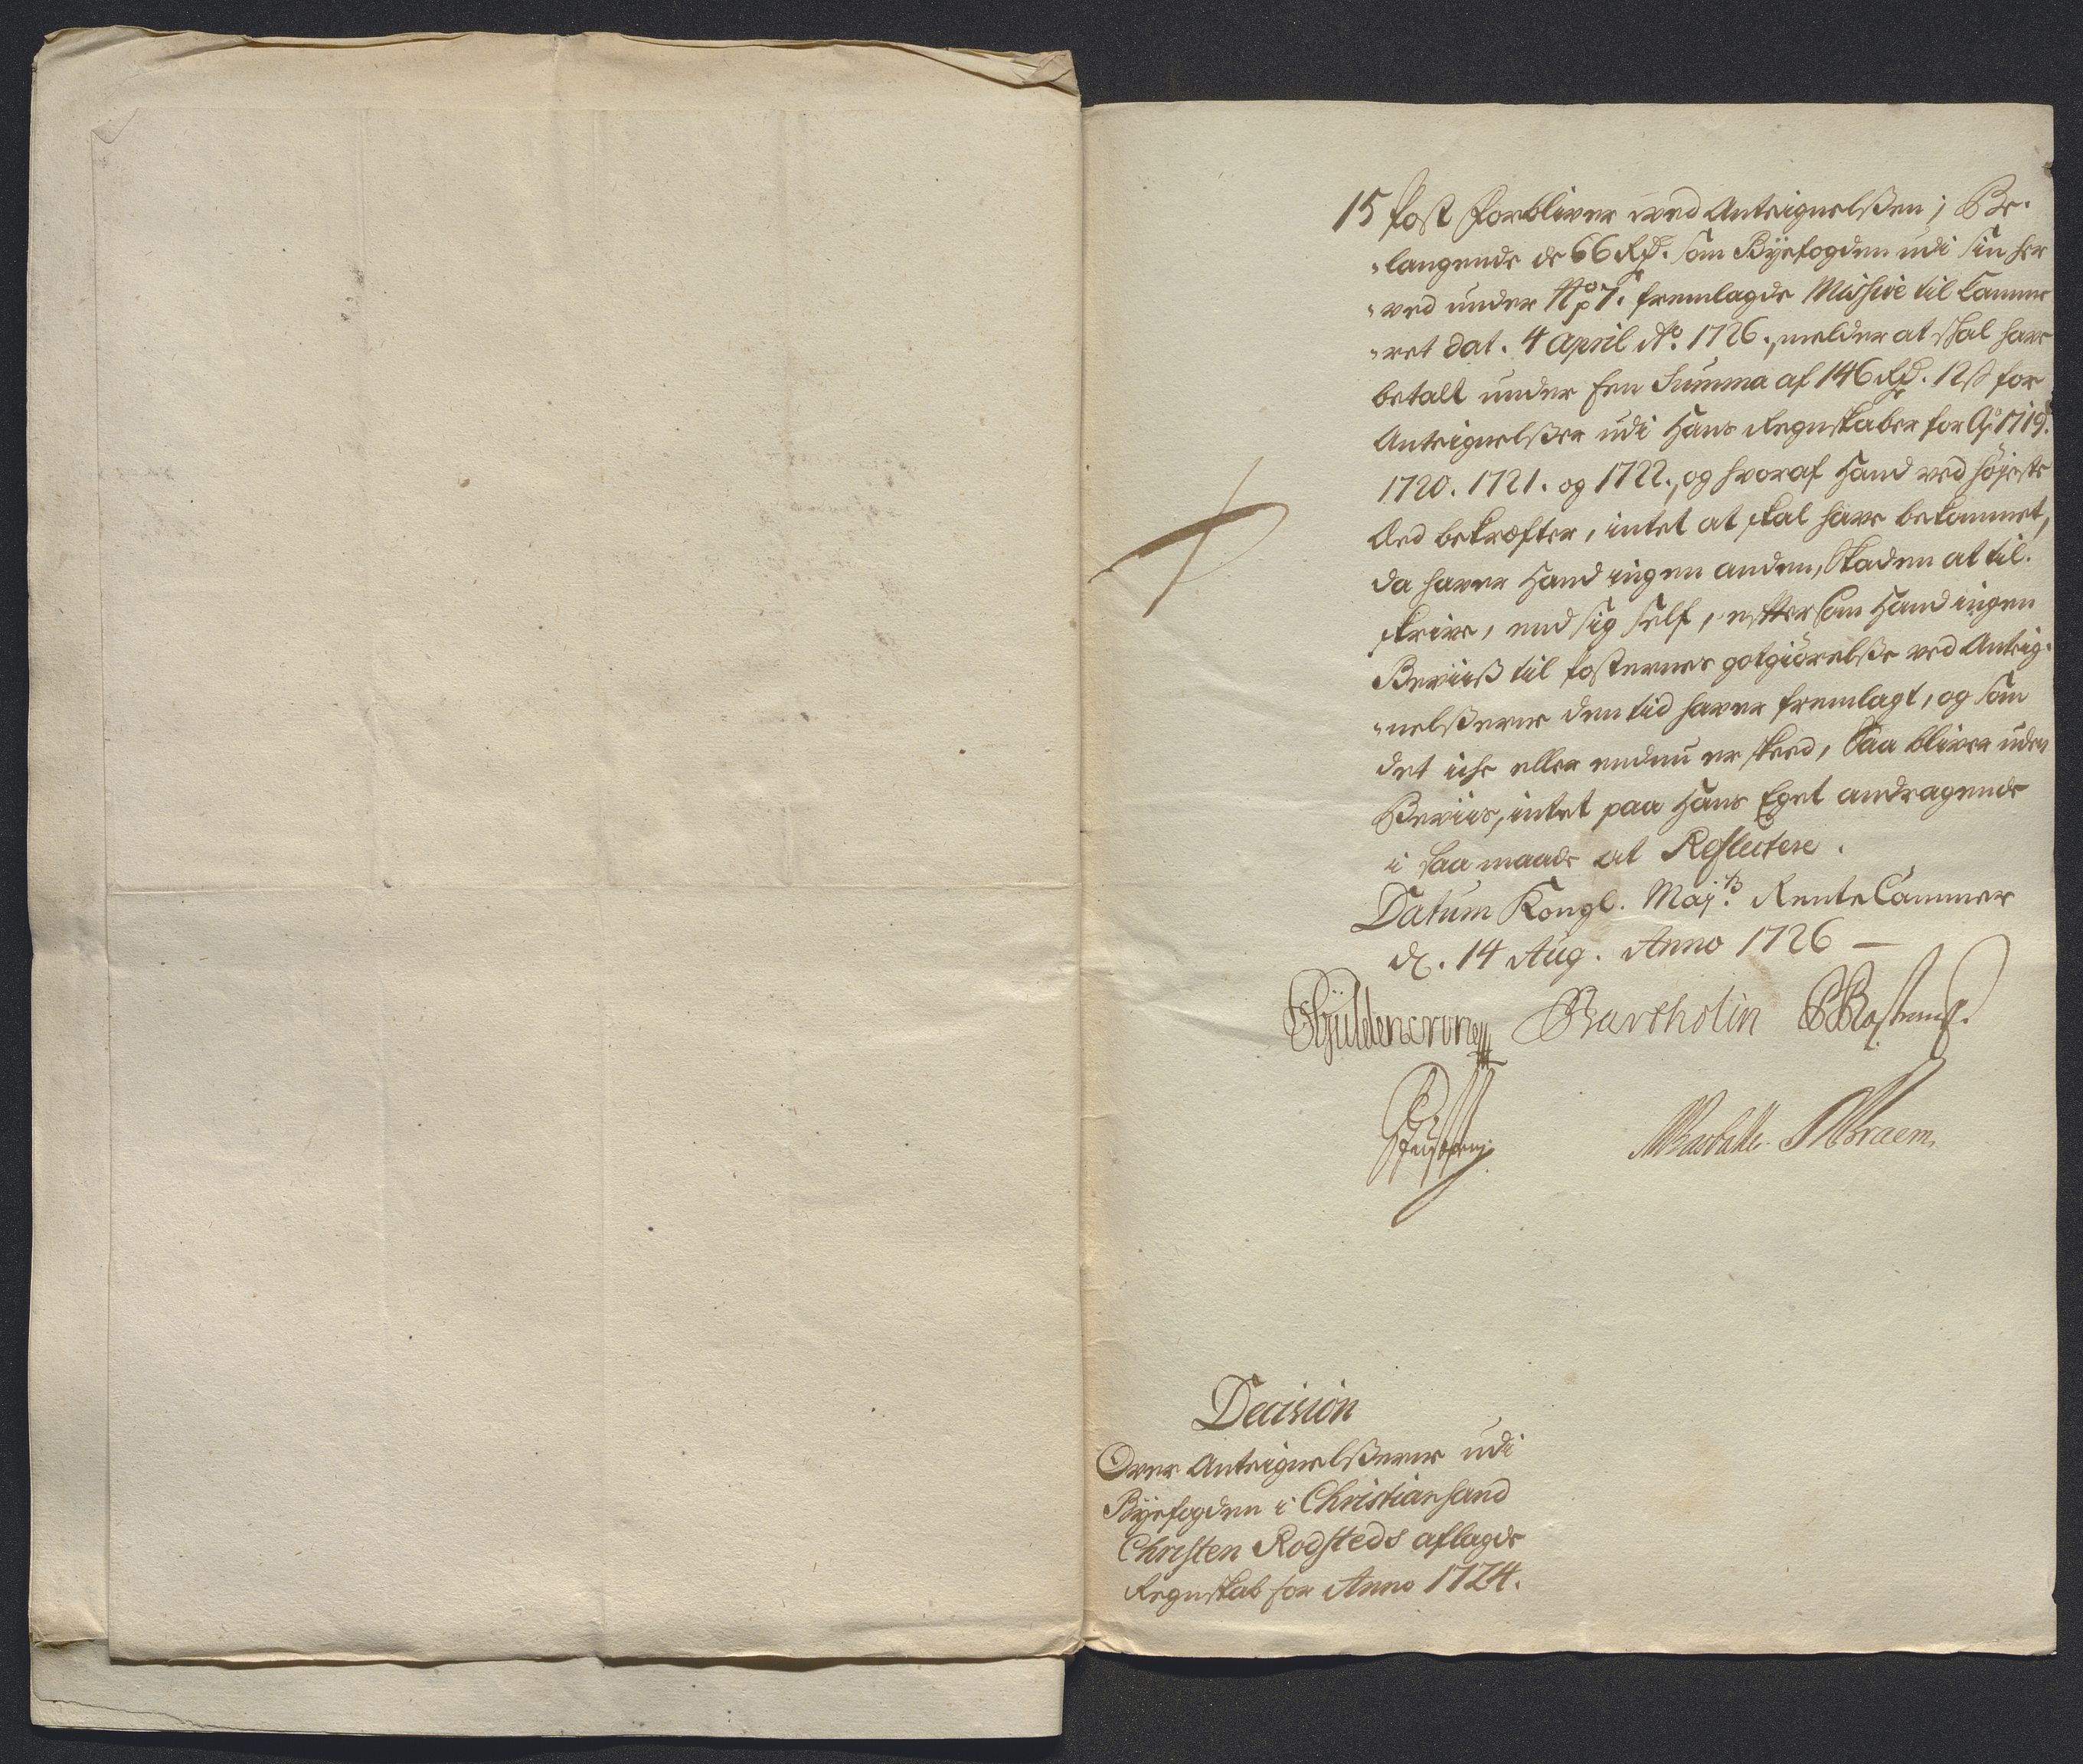 15 Post Forbliver ved Anteignelßen; Be-
langende de 66 Rd. som Byefogden udi sin her
ved under No. 7. fremlagde Missive til Camme
ret dat. 4 April Ao. 1726., melder at skal have
betalt under Een Summa af 146 Rd. 12 ß for
Anteignelßer udi Hans Regnskaber for Ao. 1719.
1720. 1721. og 1722., og hvoraf Hand ved höjeste
Eed bekræfter, intet at skal have bekommet,
da haver Hand ingen anden, Skaden at til-
skrive, end sig self, effter som Hand ingen
Beviiß til Posternes gotgiörelße ved Anteig-
nelßerne den tid haver fremlagt, og som
det iche eller endnu er skeed, Saa bliver uden
Beviis, intet paa Hans Eget andragende
i saa maade at Reflectere.
Datum Kongl. Maj.ts RenteCammer
d. 14 Aug. Anno 1726 —
Güldencrone Bartholin
Braem
Decision
Over Anteignelßerne udi
Byefogden i Christiansand
Christen Rodsteds aflagde
Regnskab for Anno 1724.